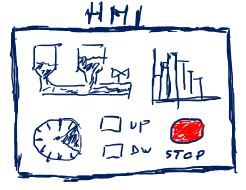 HMI
UP
DW
STOP